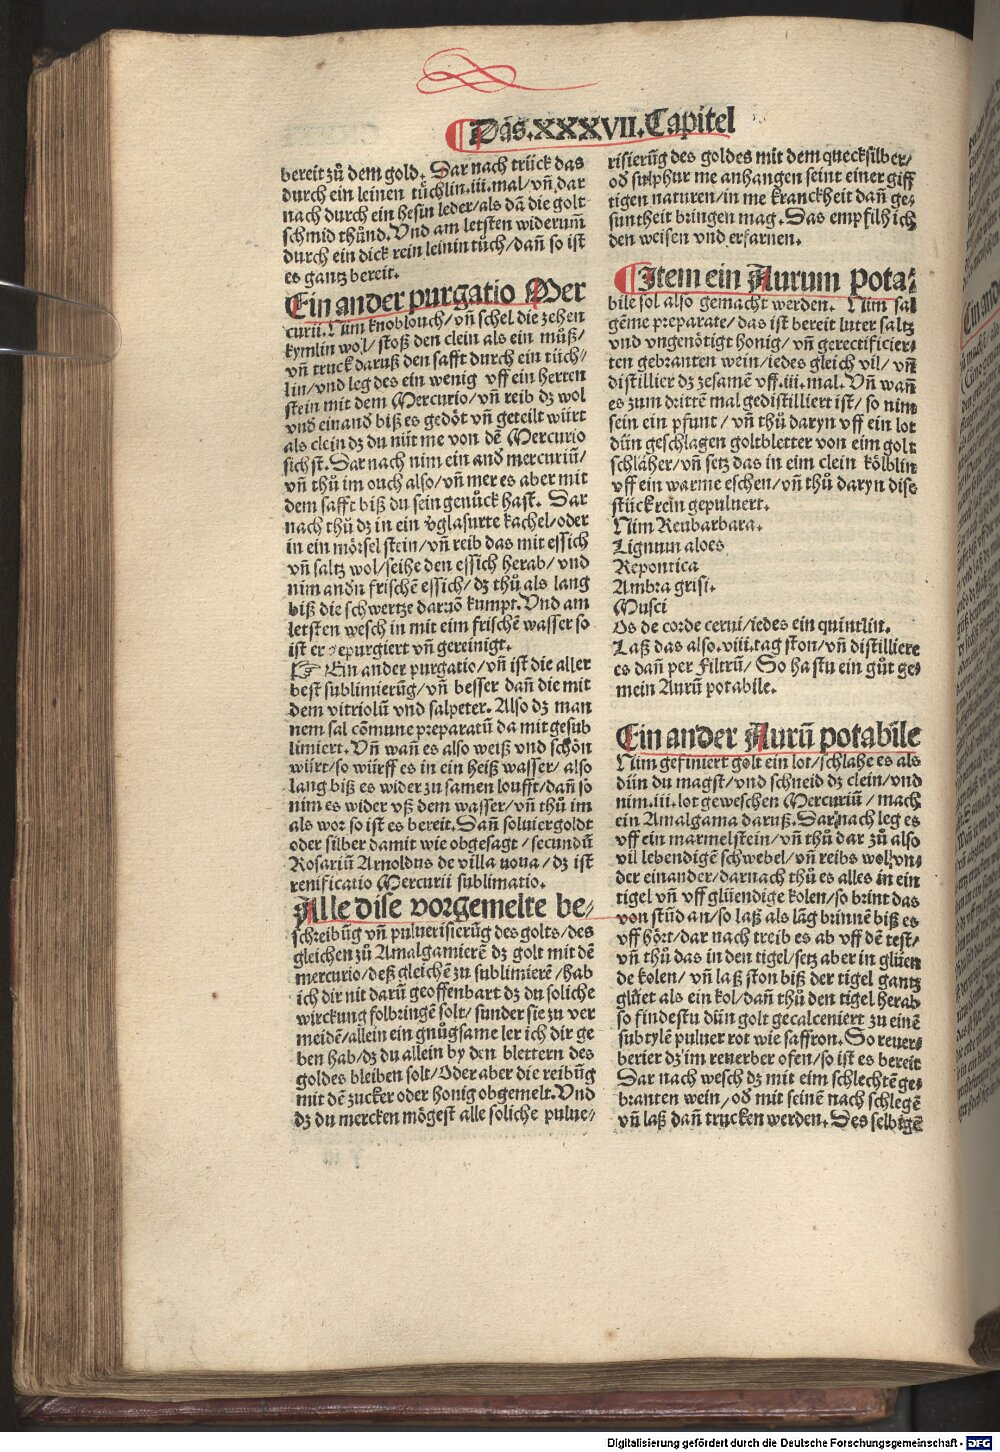 Das.XXXVII.Capitel
bereit zů dem gold. Dar nach trück das
durch ein leinen tůchlin.iii.mal/vñ dar
nach durch ein hesin leder/als dā die golt
schmid thůnd. Vnd am letsten widerum̄
durch ein dick rein leinin tůch/dañ so ist
es gantz bereit.
Ein ander purgatio Mer
curii. Nim knoblouch/vñ schel die zehen
kymlin wol/stoß den clein als ein můß/
vñ truck daruß den safft durch ein tůch-
lin/vnd leg des ein wenig vff ein herten
stein mit dem Mercurio/vñ reib dz wol
vnd einand biß es gedöt vñ geteilt würt
als clein dz du nüt me von dē Mercurio
sichst. Dar nach nim ein and mercuriū/
vñ thů im ouch also/vñ mer es aber mit
dem safft biß du sein genůck hast. Dar
nach thů dz in ein vglasurte kachel/oder
in ein mörsel stein/vñ reib das mit essich
vñ saltz wol/seihe den essich herab/vnd
nim andn frischē essich/dz thů als lang
biß die schwertze daruō kumpt. Vnd am
letsten wesch in mit eim frischē wasser so
ist er depurgiert vñ gereinigt.
☞ Ein ander purgatio/vñ ist die aller
best sublimierūg/vñ besser dañ die mit
dem vitriolū vnd salpeter. Also dz man
nem sal cōmune preparatū da mit gesub
limiert. Vñ wañ es also weiß vnd schön
würt/so würff es in ein heiß wasser/also
lang biß es wider zu samen loufft/dañ so
nim es wider vß dem wasser/vñ thů im
als vor so ist es bereit. Dañ soluier goldt
oder silber damit wie obgesagt/secundū
Rosariū Arnoldus de villa noua/dz ist
renificatio Mercurii sublimatio.
Alle dise vorgemelte be/
schreibūg vñ puluerisierūg des golts/des
gleichen zů Amalgamierē dz golt mit dē
mercurio/deß gleichē zu sublimierē/hab
ich dir nit darū geoffenbart dz du soliche
wirckung folbringē solt/sunder sie zu ver
meidē/allein ein gnůgsame ler ich dir ge
ben hab/dz du allein by den blettern des
goldes bleiben solt/Oder aber die reibūg
mit dē zucker oder honig obgemelt. Vnd
dz du mercken mögest alle soliche pulue/
risierūg des goldes mit dem quecksilber/
od sulphur me anhangen seint einer giff
tigen naturen/in me kranckheit dañ ge-
suntheit bringen mag. Das empfilh ich
den weisen vnd erfarnen.
Item ein Aurum pota-
bile sol also gemacht werden. Nim sal
gēme preparate/das ist bereit luter saltz
vnd vngenötigt honig/vñ gerectificier-
ten gebranten wein/iedes gleich vil/vñ
distillier dz zesamē vff.iii.mal. Vñ wañ
es zum drittē mal gedistilliert ist/so nim
sein ein pfunt/vñ thů daryn vff ein lot
dün geschlagen goltbletter von eim golt
schläher/vñ setz das in eim clein kölblin
vff ein warme eschen/vñ thů daryn dise
stück rein gepuluert.
Nim Reubarbara.
Lignum aloes
Repontica
Ambra grisi.
Musci
Os de corde cerui/iedes ein quintlin.
Laß das also.viii.tag ston/vñ distilliere
es dañ per Filtrū/So hastu ein gůt ge-
mein Aurū potabile.
Ein ander Aurū potabile
Nim gefiniert golt ein lot/schlahe es als
dün du magst/vnd schneid dz clein/vnd
nim.iii.lot geweschen Mercuriū/mach
ein Amalgama daruß. Dar nach leg es
vff ein marmelstein/vñ thů dar zů also
vil lebendigē schwebel/vñ reibs wol vn-
der einander/darnach thů es alles in ein
tigel vñ vff glüendige kolen/so brint das
von stūd an/so laß als lāg brinnē biß es
vff hört/dar nach treib es ab vff dē test/
vñ thů das in den tigel/setz aber in glüen
de kolen/vñ laß ston biß der tigel gantz
glüet als ein kol/dañ thů den tigel herab
so findestu dün golt gecalceniert zu einē
subtylē puluer rot wie saffron. So reuer-
berier dz im reuerber ofen/so ist es bereit
Dar nach wesch dz mit eim schlechtē ge-
branten wein/od mit seinē nach schlegē
vñ laß dañ trucken werden. Des selbigē
Digitalisierung gefördert durch die Deutsche Forschungsgemeinschaft - DFG